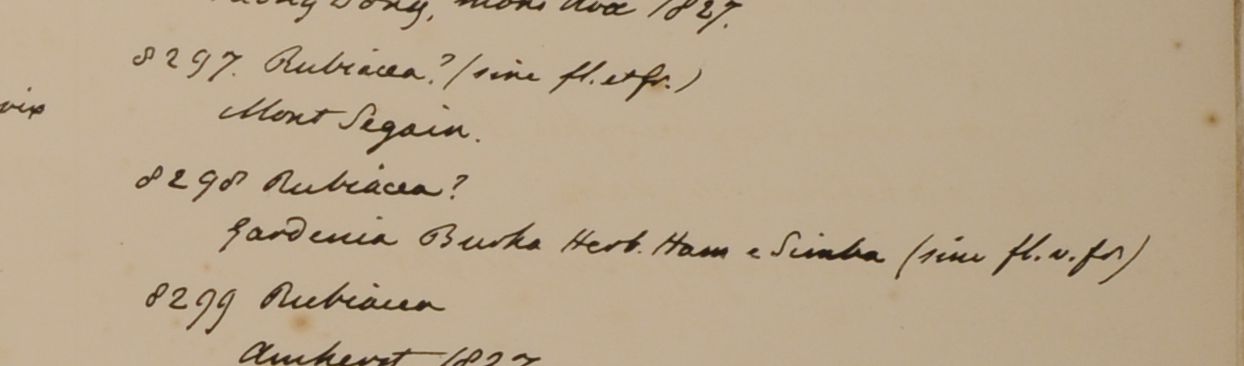 Dong, mons Ava 1827.
8297. Rubiacea? (sine fl. et fr.)
vix
Mont Segain.
8298 Rubiacea?
Gardenia Burka Herb. Ham e Simba (sine fl. v. fr)
8299 Rubiacea
Amherst 1827